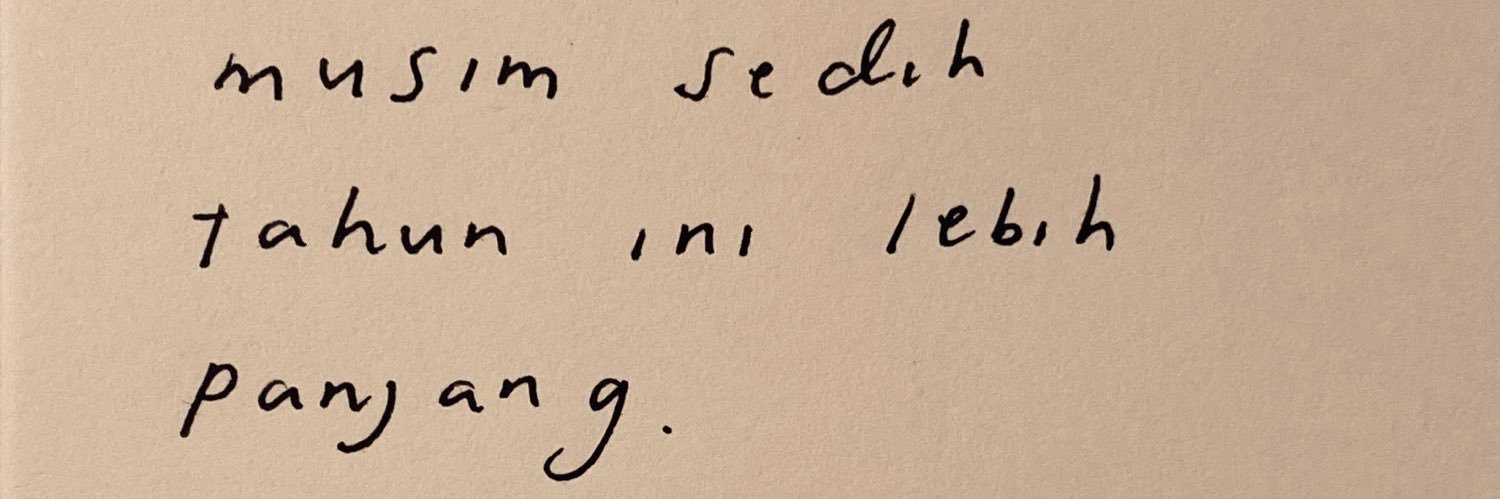 musim sedih
tahun ini lebih
panjang.